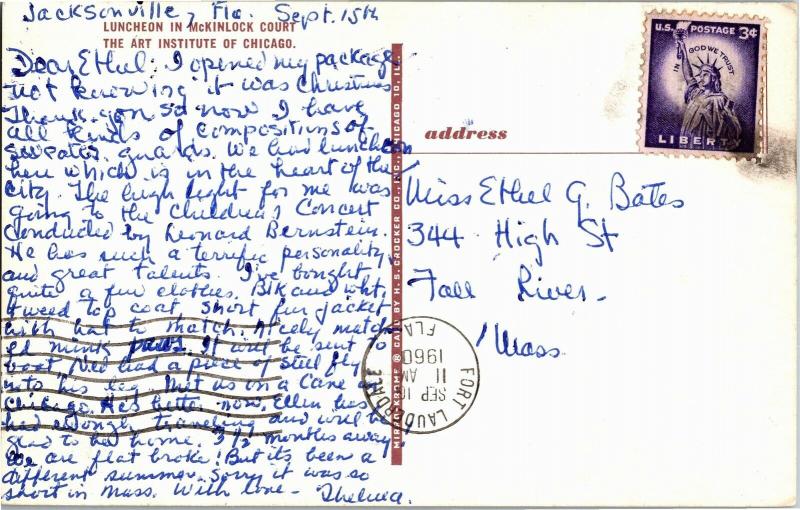 Jacksonville, Fla. Sept. 15th
LUNCHEON IN McKINLOCK COURT
THE ART INSTITUTE OF CHICAGO.
Dear Ethel: I opened my package
not knowing it was Christmas
Thank you so now I have
all kinds of compositions of
sweater guards. We had luncheon
here which is in the heart of the
City. The high light for me was
going to the Children's Concert
conducted by Leonard Bernstein.
He has such a terrific personality
and great talents. I've bought
quite a few clothes. Blk and wht.
tweed top coat, short fur jacket
with hat to match. Nicely match
ed mink paws. It will be sent to
boat, Ned had a piece of steel fly
into his leg. Met us on a Cane in
Chicago. He's better now. Ellen has
had enough traveling and will be
glad to be home. 3 1/2 months away
We are flat broke! But its been a
different summer. Sorry it was so
short in Mass. With love - Thelma.
MIRRO-KROME ® CARD BY H. S. CROCKER CO., INC., CHICAGO 10, ILL.
address
U.S. POSTAGE 3¢
IN GOD WE TRUST
LIBERTY
Miss Ethel G. Bates
344 High St
Fall River.
Mass
FORT LAUDERDALE
SEP
11 AM
1960
FLA